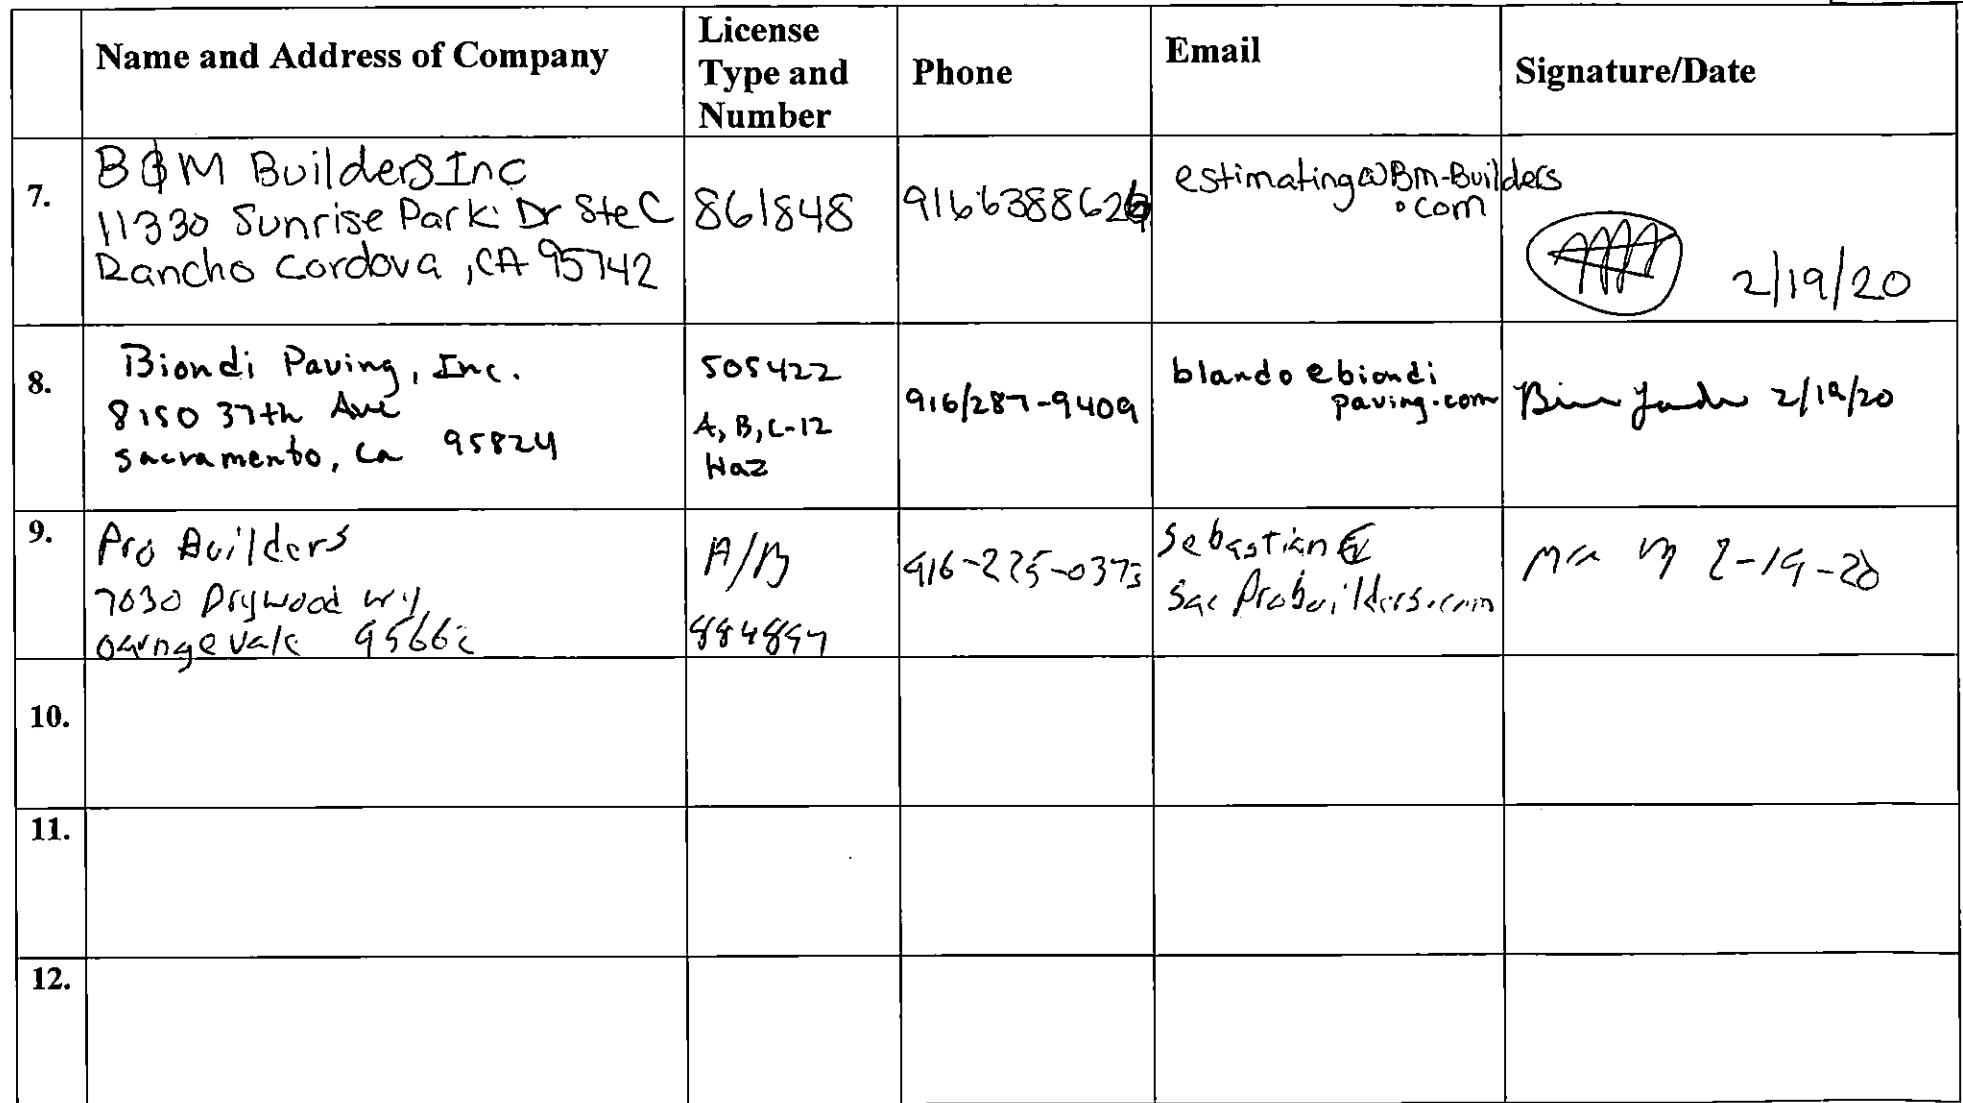 Name and Address of Company
License
Type and
Number
Phone
Email
Signature/Date
7.
B&M Builders Inc
11330 Sunrise Park Dr Ste C
Rancho Cordova, CA 95742
861848
9166388626
estimating@Bm-Builders
.com
2/19/20
8.
Biondi Paving, Inc.
8150 37th Ave
Sacramento, Ca 95824
505422
A, B, C-12
Haz
916/287-9409
blando@biondi
paving.com
2/19/20
9.
Pro Builders
7030 Drywood wy
95662
A/B
884897
916-225-0373
Sebastian@
SacProbuilders.com
2-19-20
10.
11.
12.